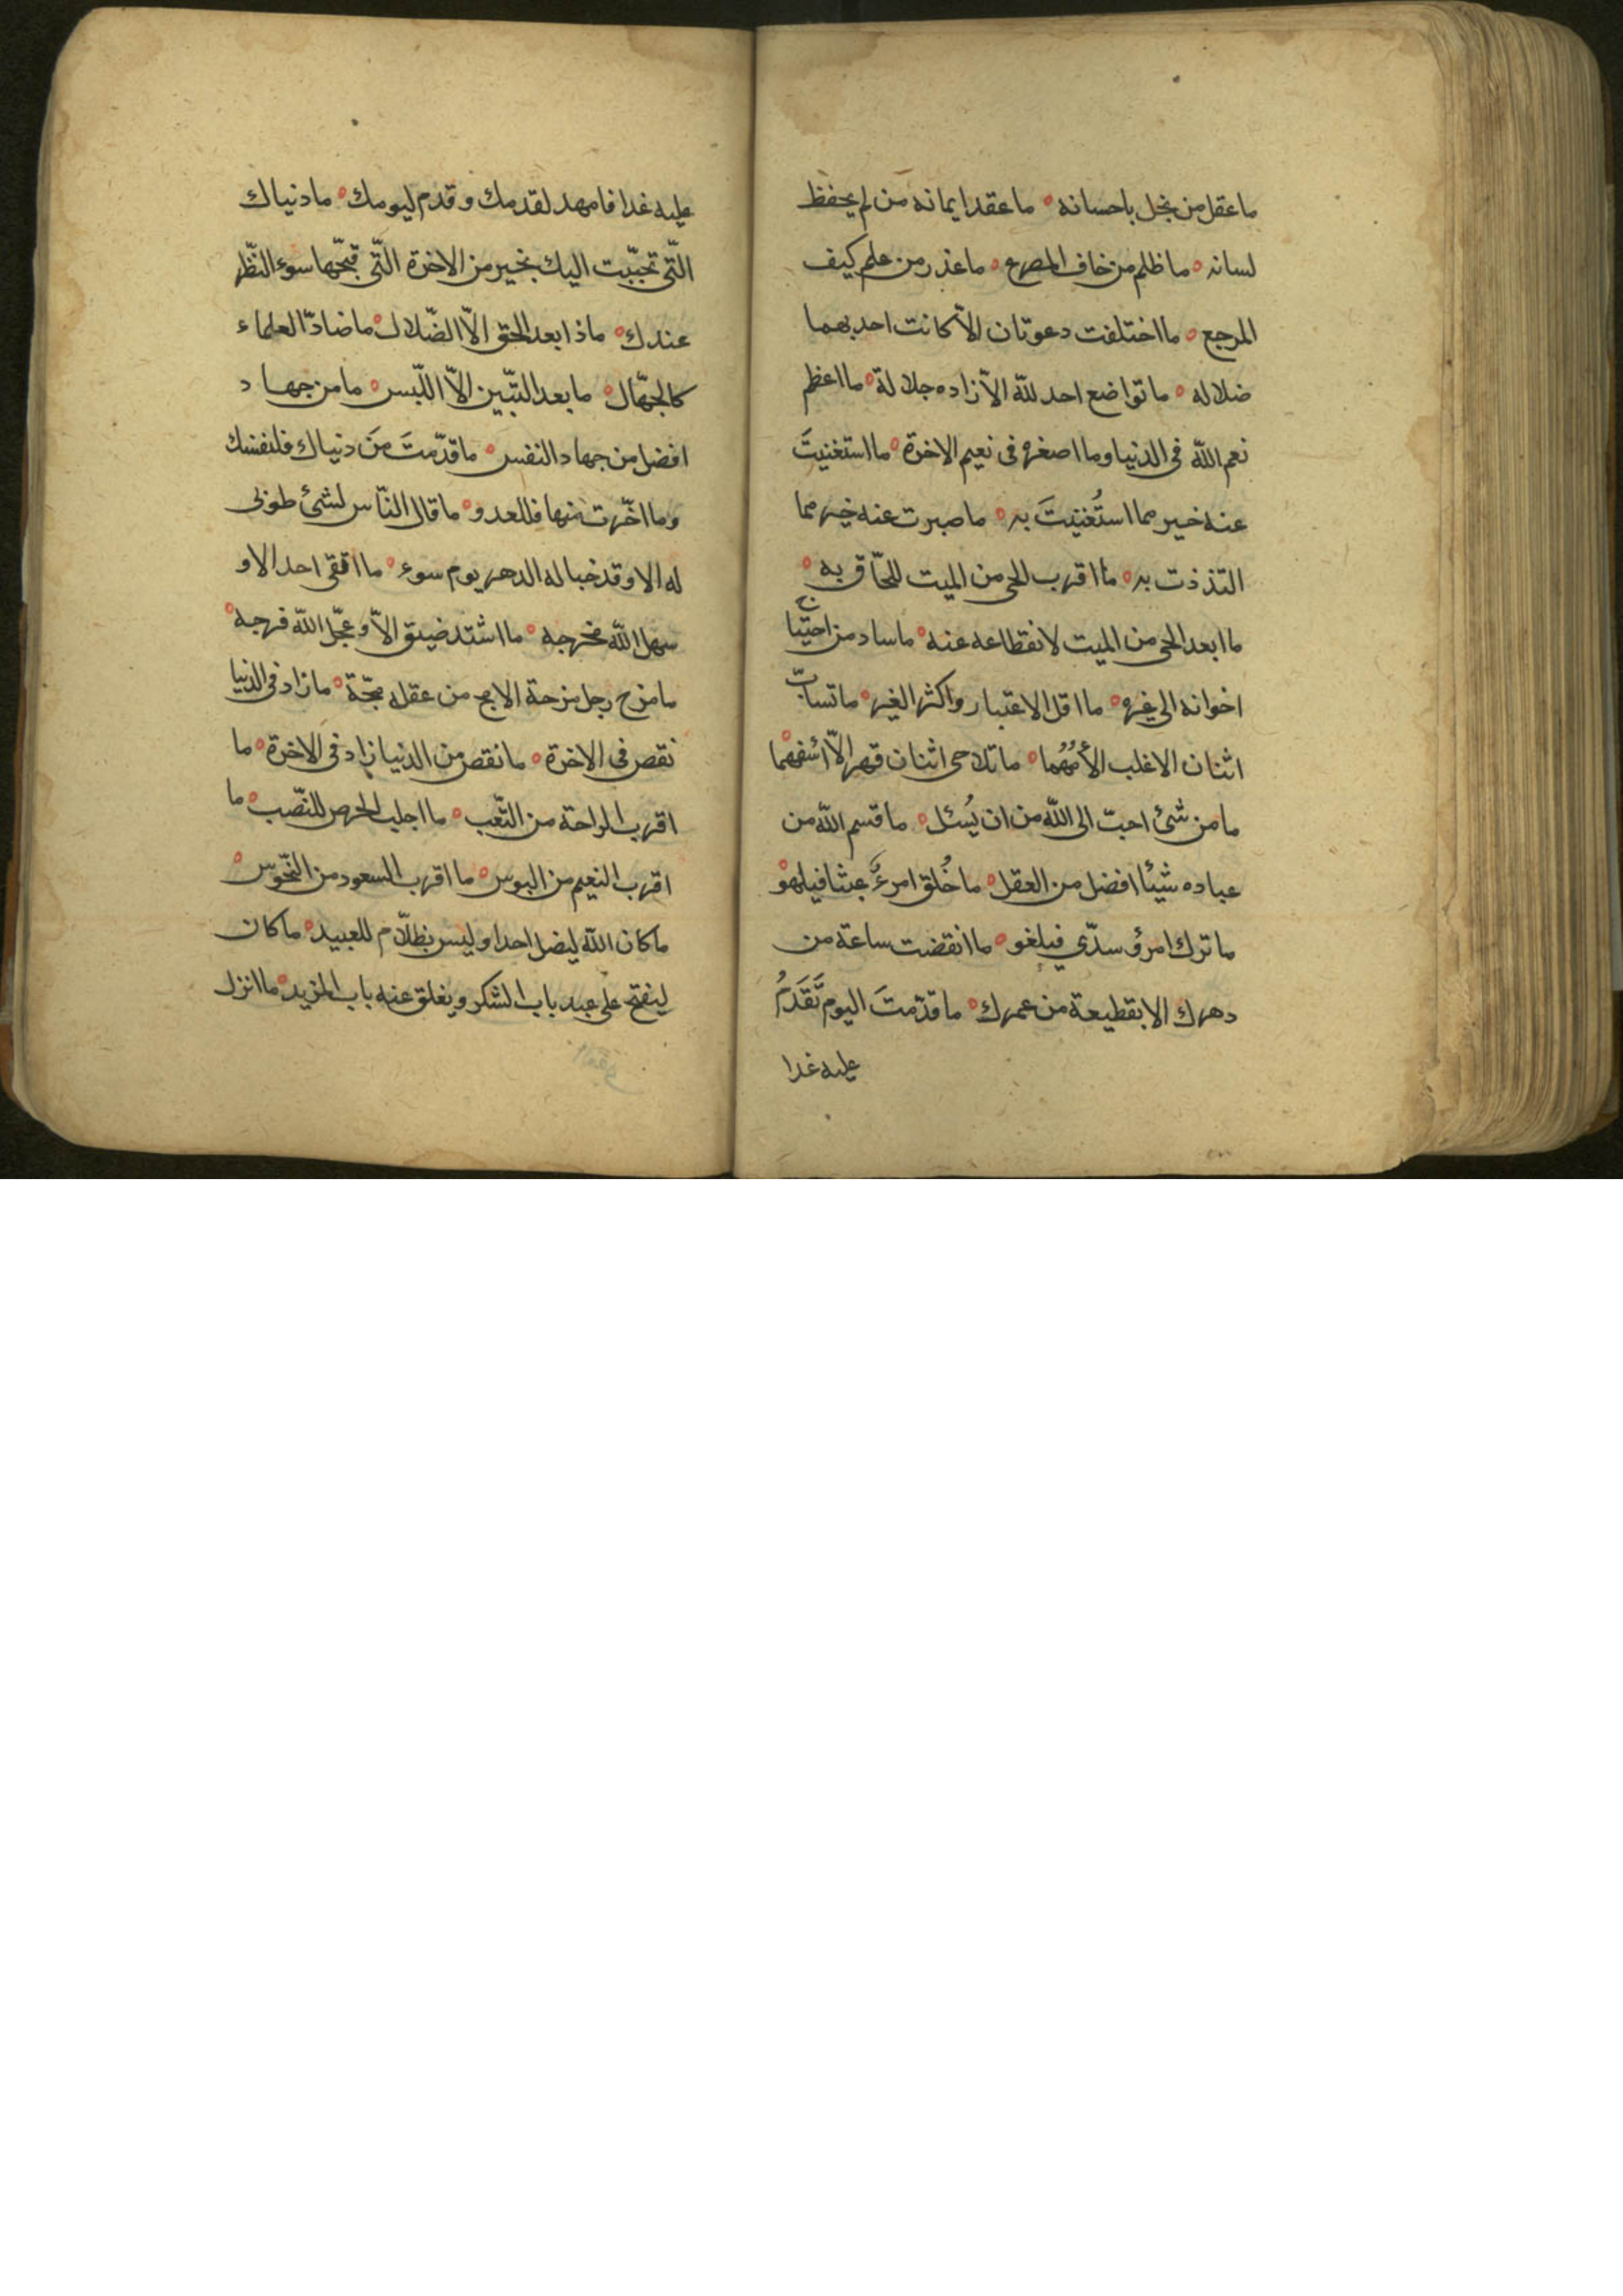 ما عقل من بخل باحسانه ه ما عقد ايمانه من لم يحفظ
لسانه ه ما ظلم من خاف المصرع ه ما غدر من علم كيف
المرجع ه ما اختلفت دعوتان الّا كانت احديهما
ضلاله ه ما تواضع احد للّه الّا زاده جلالة ه ما اعظم
نعم اللّه فى الدنيا وما اصغره فى نعيم الاخرة ه ما استغنيتَ
عنه خير مما استُغنيتَ به ه ما صبرت عنه خير مما
التذذت به ه ما اقرب الحى من الميت للحّاق به ه
ما ابعد الحى من الميت لانقطاعه عنه ه ما ساد من احتيّا
ج
اخوانه الى غيره ه ما اقل الاعتبار واكثر الغير ه ما تسابّ
اثنان الا غلب الأمُهُما ه ما تلاحى اثنان قهر الّا اسفههما ه
ما من شئ احبّ الى اللّه من ان يُسئل ه ما قسم اللّه من
عباده شيئا افضل من العقل ه ما خُلق امرءٌ عبثا فيلهو ه
ما ترك امرؤ سدّي فيلغو ه ما انقضت ساعة من
دهرك الا بقطيعة من عمرك ه ما قدّمتَ اليوم تَقَدَمُ
عليه غدا
عليه غدا فامهد لقدمك و قدم ليومك ه ما دنياك
الّتى تحبّبت اليك بخير من الاخرة الّتى قبّحها سوء النّظر
عندك ه ماذا بعد الحق الّا الضّلال ه ما ضادّ العلماء
كالجهّال ه ما بعد التبّين الّا اللّبس ه ما من جهاد
افضل من جهاد النفس ه ما قدّمتَ مَن دنياك فلنفسك
وما اخّرت منها فللعدو ه ما قال النّاس لشئ طوبى
له الا وقد خبا له الدهر يوم سوء ه ما اتقى احد الا و
سهل اللّه مخرجه ه ما اشتد ضيق الّا و عجّل اللّه فرجه ه
ما مزح رجل مزحة الا مج من عقله مجّة ه ما زاد فى الدنيا
نقص فى الاخرة ه ما نقص من الدنيا زاد فى الاخرة ه ما
اقرب الراحة من التّعب ه ما اجلب الحرص للنّصب ه ما
اقرب النعيم من البوس ه ما اقرب السعود من النّحوس ه
ما كان اللّه ليضل احدا و ليس بظلّام للعبيد ه ما كان
ليفتح على عبد باب الشكر و يغلق عنه باب المزيد ه ما انزل